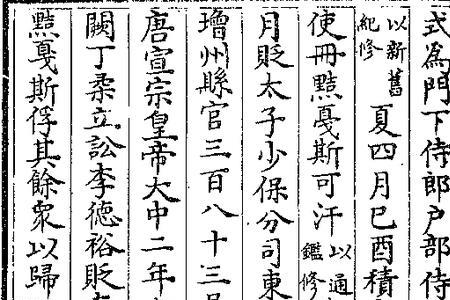 式為門下侍郎户部侍
以新舊紀修夏四月己酉積
使冊黠戛斯可汗以通鑑修
月貶太子少保分司東
增州縣官三百八十三
唐宣宗皇帝大中二年
闕丁柔立訟李德裕貶
黠戛斯俘其餘衆以歸